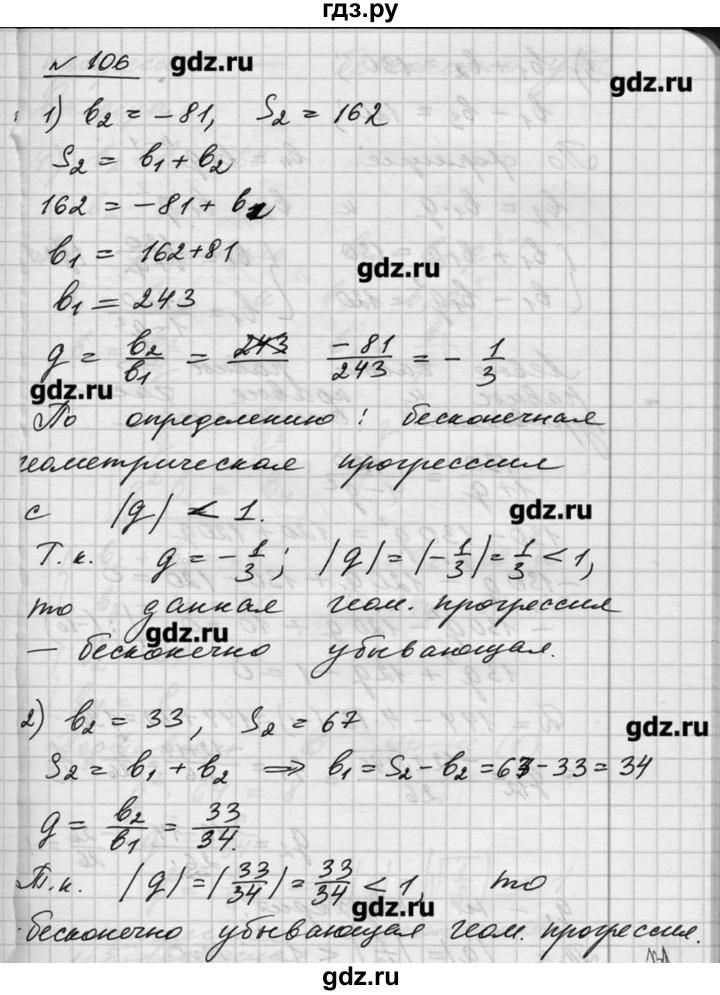 гдз.ру
№ 106 gdz.ru
gdz.ru
1) b₂ = -81, S₂ = 162
S₂ = b₁ + b₂
162 = -81 + b₁
b₁ = 162+81
gdz.ru
b₁ = 243
q = b₂/b₁ = 243 -81/243 = - 1/3
gdz.ru
По определению: бесконечная
геометрическая прогрессия
с |q| < 1.
gdz.ru
Т.к. q = -1/3; |q| = |-1/3| = 1/3 < 1,
то данная геом. прогрессия
gdz.ru
— бесконечно убывающая.
2) b₂ = 33, S₂ = 67
gdz.ru
S₂ = b₁ + b₂ ⇒ b₁ = S₂ - b₂ = 67-33 = 34
q = b₂/b₁ = 33/34.
Т.к. |q| = |33/34| = 33/34 < 1, то
gdz.ru
бесконечно убывающая геом. прогрессия.
gdz.ru